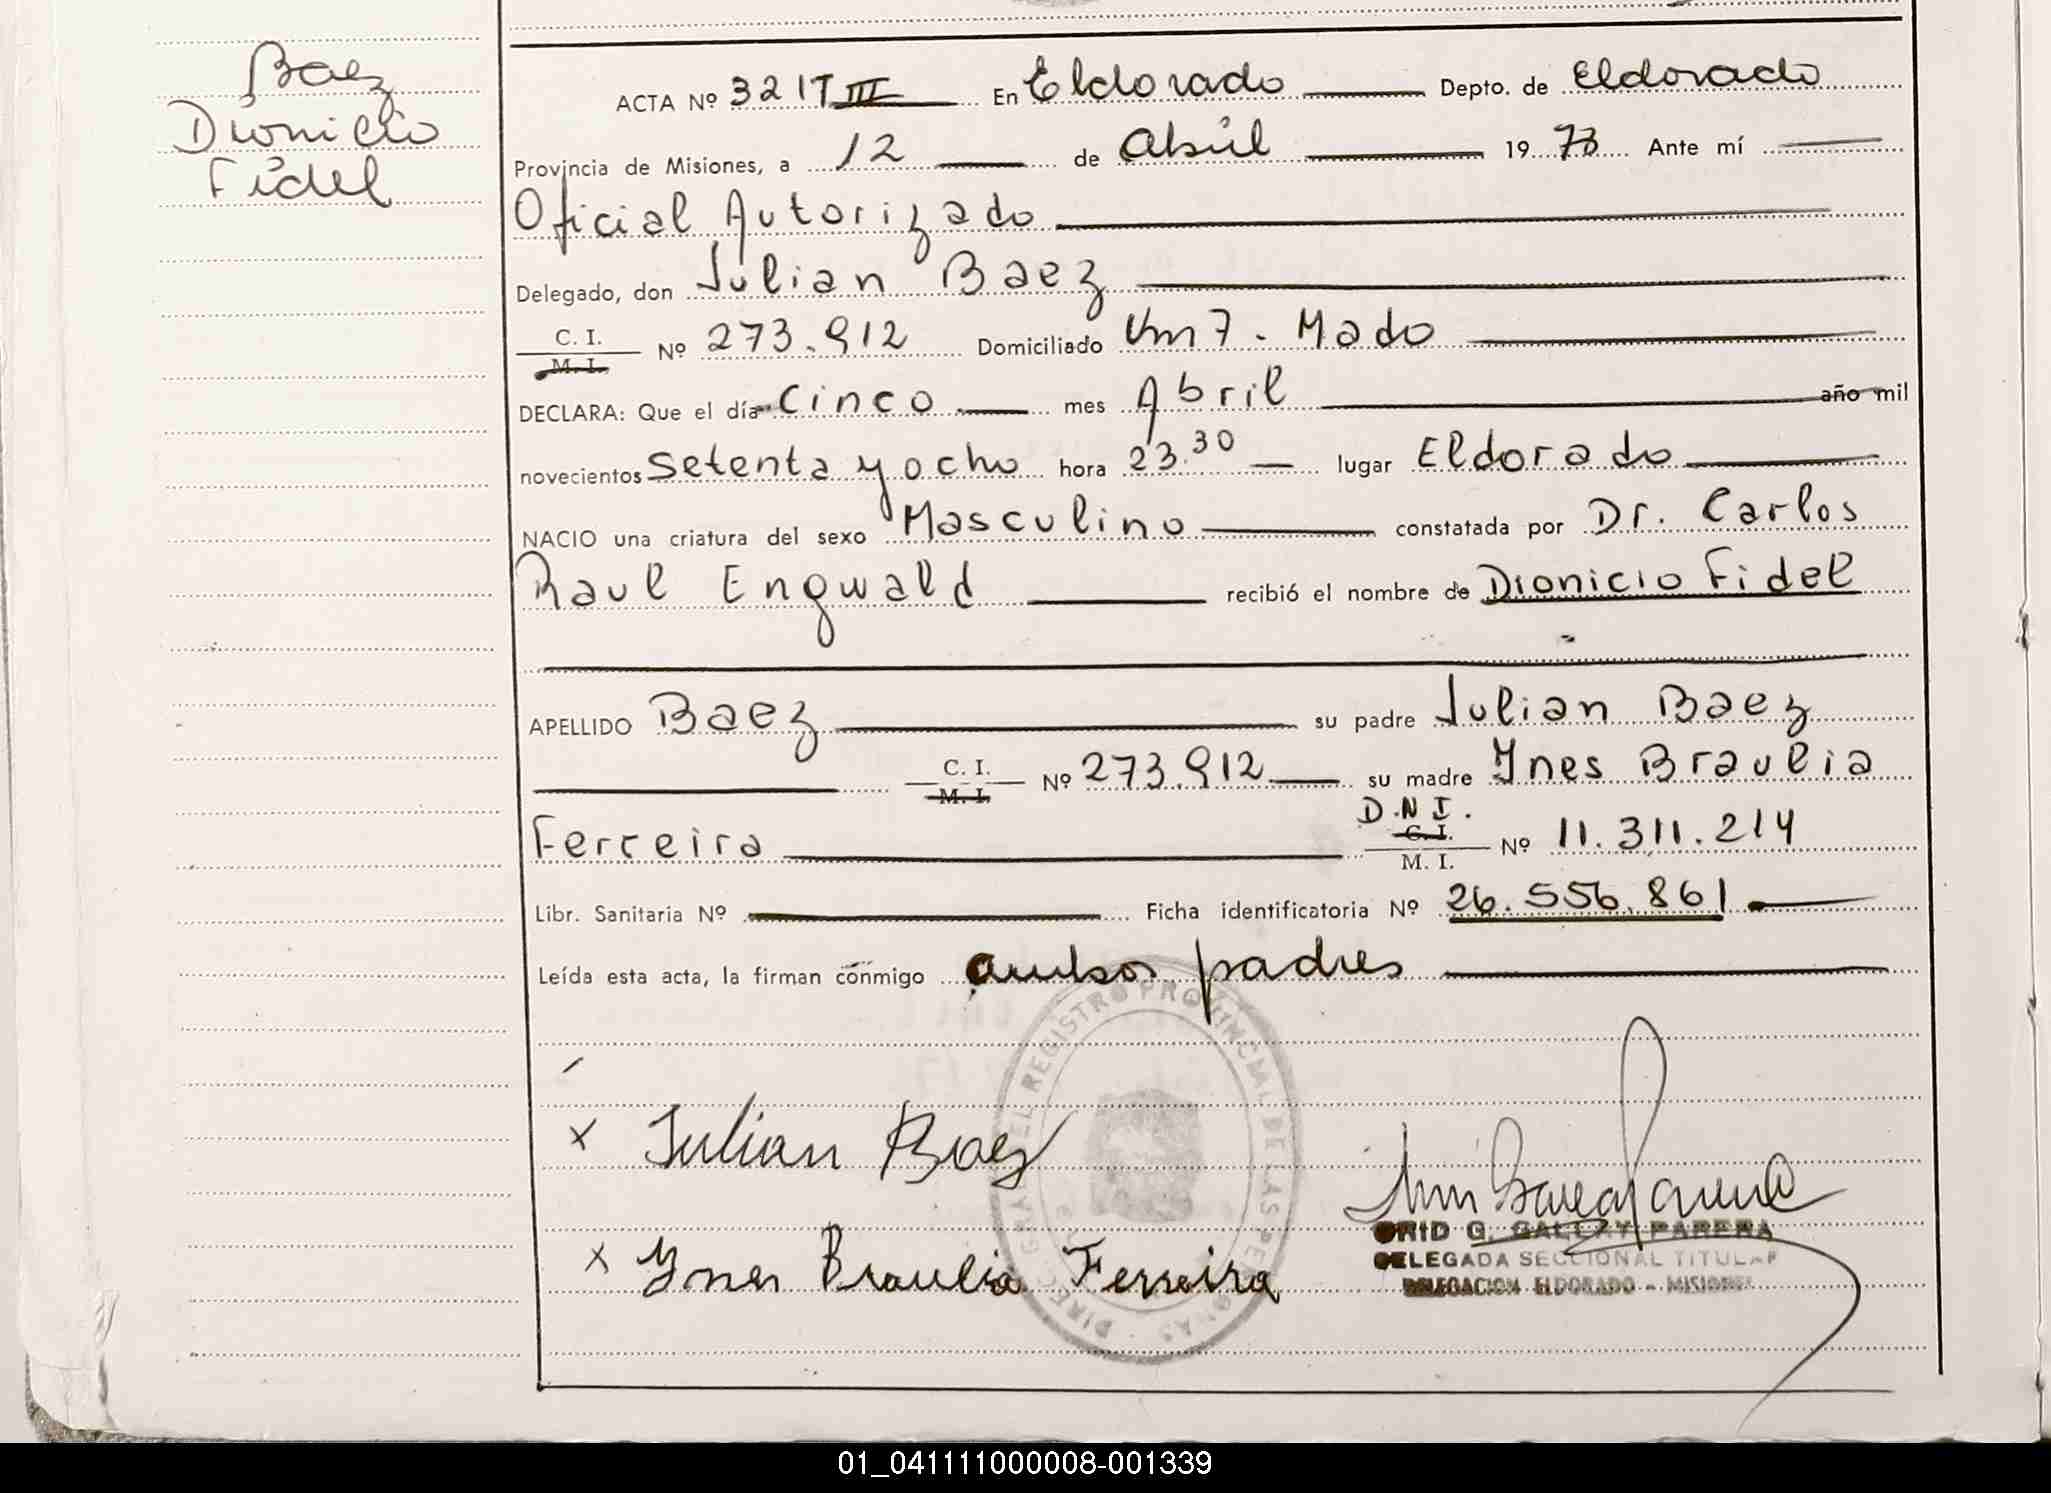 Baez
Dionicio
Fidel
ACTA Nº 321 T III En Eldorado Depto. de Eldorado
Provincia de Misiones, a 12 de Abril 1978 Ante mí
Oficial Autorizado
Delegado, don Julian Baez
C. I.
M. I.
Nº 273.912 Domiciliado Km 7 - Mado
DECLARA: Que el día Cinco mes Abril año mil
novecientos Setenta y ocho hora 23.30 lugar Eldorado
NACIO una criatura del sexo Masculino constatada por Dr. Carlos
Raul Engwald recibió el nombre de Dionicio Fidel
APELLIDO Baez su padre Julian Baez
C. I.
M. I.
Nº 273.912 su madre Ynes Braulia
Ferreira D.N.I.
C. I.
M. I.
Nº 11.311.214
Libr. Sanitaria Nº Ficha identificatoria Nº 26.556.861
Leída esta acta, la firman conmigo ambos padres
x Julian Baez
x Ynes Braulia Ferreira
G. GALLAY PARERA
DELEGADA SECCIONAL TITULAR
DELEGACION ELDORADO - MISIONES
REGISTRO PROVINCIAL DE LAS PERSONAS
01_041111000008-001339